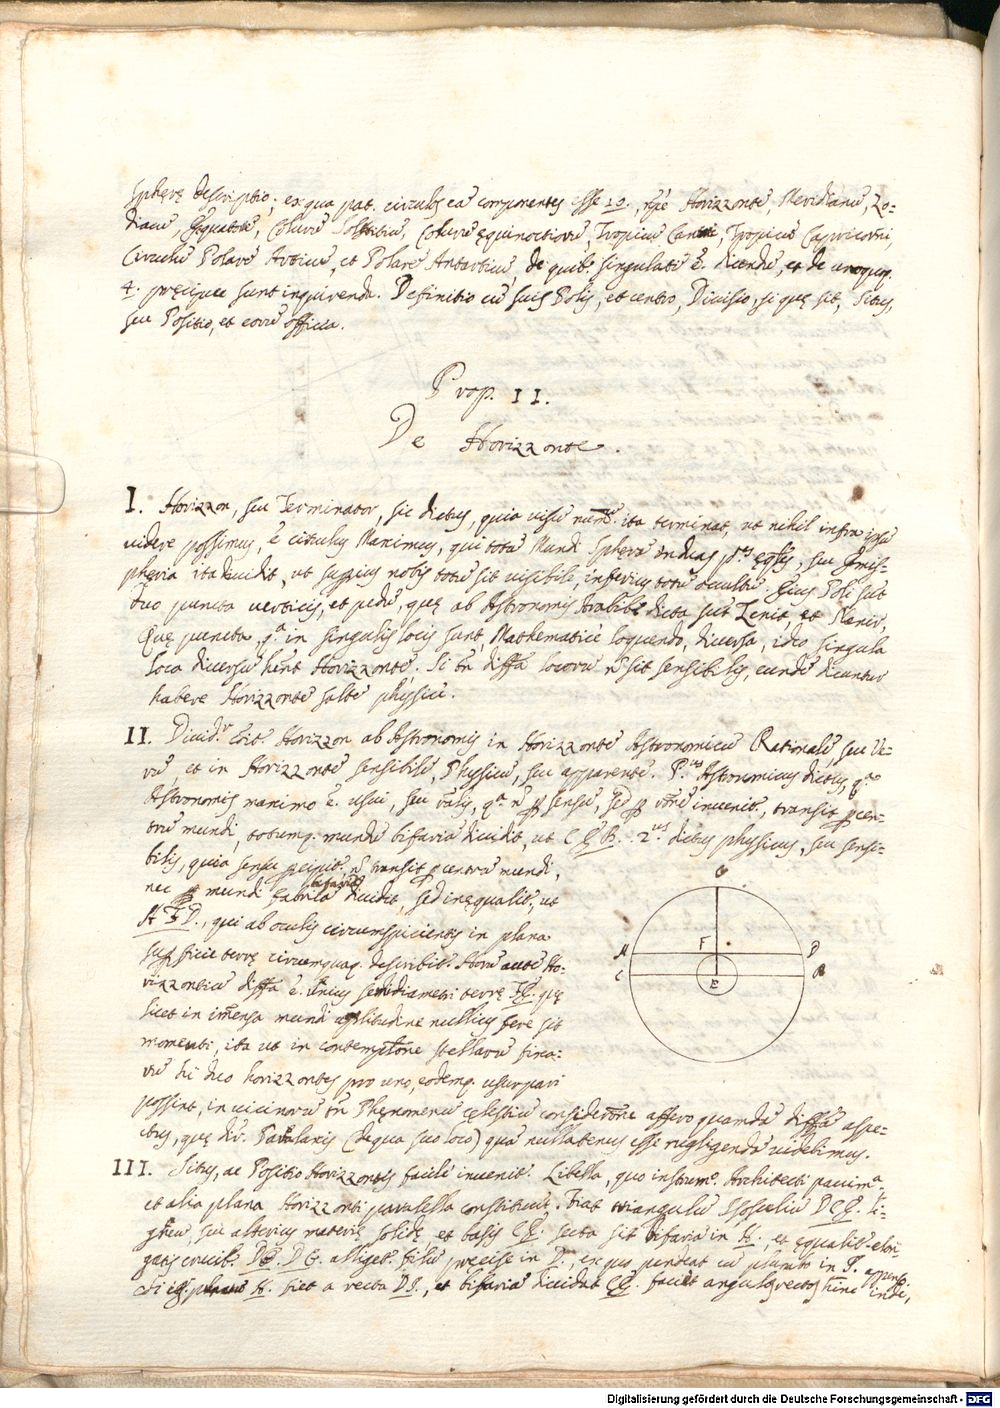 Spherę descriptio; ex qua pat. circulos eã componentes esse 10., nẽpe Horizzontẽ, Meridianũ, Zo-
diacũ, Ęquatorẽ, Colurũ Solstitiũ, Colurũ ęquinoctiorũ, Tropicũ Cancri, Tropicũ Capricorni,
Circulũ Polarẽ Articũ, et Polarẽ Antarticũ, de quib. singulati ẽ. dicendũ, et de unoquoq.
4. pręcipue sunt inquirenda. Definitio cũ suis Polis, et centro, Divisio, si quę sit, Situs,
seu Positio, et eorũ officia.
Prop. II.
De Horizzonte.
I. Horizzon, seu Terminator, sic dictus, quia visũ nrũm ita terminat, ut nihil infra ipsũ
videre possimus, ẽ circulus Maximus, qui totã Mundi Spherã in duas p.tes ęqles, seu Ęmis-
phęria ita dividit, ut supius nobis totũ sit visibile, inferius totũ occultũ. Eius Poli sũt
duo puncta verticis, et pedũ, quę ab Astronomis Arabib. dicta sũt Zenit, et Nadir,
Quę puncta, q.a in singulis locis sunt, Mathematicè loquendo, diversa, ideo singula
loca diversũ hẽnt Horizzontẽ. Si tñ diffã locorũ ñ sit sensibilis, eundẽ dicuntur
habere Horizzontẽ saltẽ physicũ.
II. Divid.r Horizzon ab Astronomis in Horizzontẽ Astronomicũ Rationalẽ, seu Ve-
rũ, et in Horizzontẽ sensibilẽ, Physicũ, seu apparentẽ. P.us Astronomicus dictus, q.a
Astronomis maximo ẽ. usui, seu rãlis, q.a ñ p sensũ, sed p rõnẽ invenit., transit p cen-
trũ mundi, totumq. mundũ bifariã dividit, ut C E B. 2.us dictus physicus, seu sensi-
bilis, quia sensu pcipit., ñ transit p centrũ mundi,
nec p mundi fabricã bifariã dividit, sed inęqualit., ut
A F D., qui ab oculis circumspicientis in plana
supficie terrę circumquaq. describit. Horũ autẽ Ho-
rizzontiũ diffã ẽ. unius semidiametri terrę FE. quę
licet in imẽnsa mundi amplitudine nullius fere sit
momenti, ita ut in contemplãtone stellarũ fixa-
rũ hi duo horizzontes pro uno, eodemq. usurpari
possint, in vicinorũ tñ Phęnomenũ cęlestiũ considerõne affero quamdã diffã aspe-
ctus, quę dir. Parallaxis (de qua suo loco) quã nullatenus esse negligendã videbimus.
III. Situs, ac Positio Horizzontis facilè invenit. Libella, quo instrum.o Architecti pavim.a
et alia plana Horizzonti paralella constituũt. Fiat triangulũ Isosceliũ DCE. li-
gneũ, seu alterius materię solidę, et basis CE. secta sit bifariã in H., et ęqualit. elon-
gatis crurib. DC. DE. alliget. filũ pręcise in D., ex quo pendeat cũ plumbo in I. appenso
Si eg. H. fiet a recta DI., et bifariã dividat CE. faciet angulos rectos hinc inde,
G
A
F
D
C
B
E
Digitalisierung gefördert durch die Deutsche Forschungsgemeinschaft - DFG